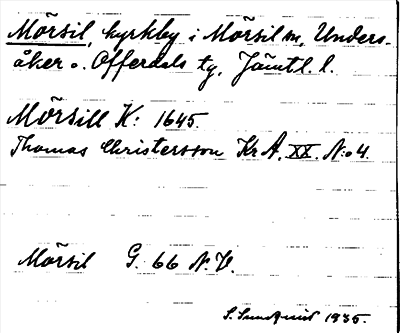 Mörsil, kyrkby i Mörsil sn, Unders-
åker o. Offerdals tg, Jämtl. l.
Mörsill K: 1645.
Thomas Christersson Kr A. XX. N:o 4.
Mörsil G. 66 N.V.
S. Sundquist 1935.